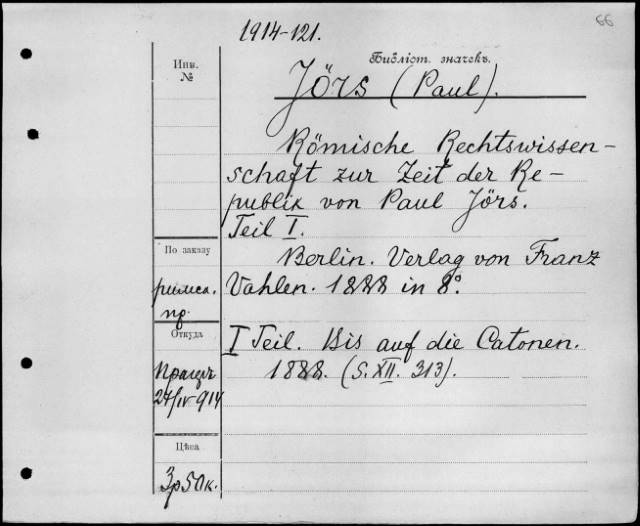 66
1914-121.
Инв.
№
Библіот. значекъ.
Jörs (Paul).
Römische Rechtswissen-
schaft zur Zeit der Re-
publik von Paul Jörs.
Teil I.
Berlin. Verlag von Franz
Vahlen. 1888 in 8º.
По заказу
римск.
пр.
I Teil. Bis auf die Catonen.
1888. (S. XII. 313).
Откуда
24/IV-914
Цѣна
3р50к.